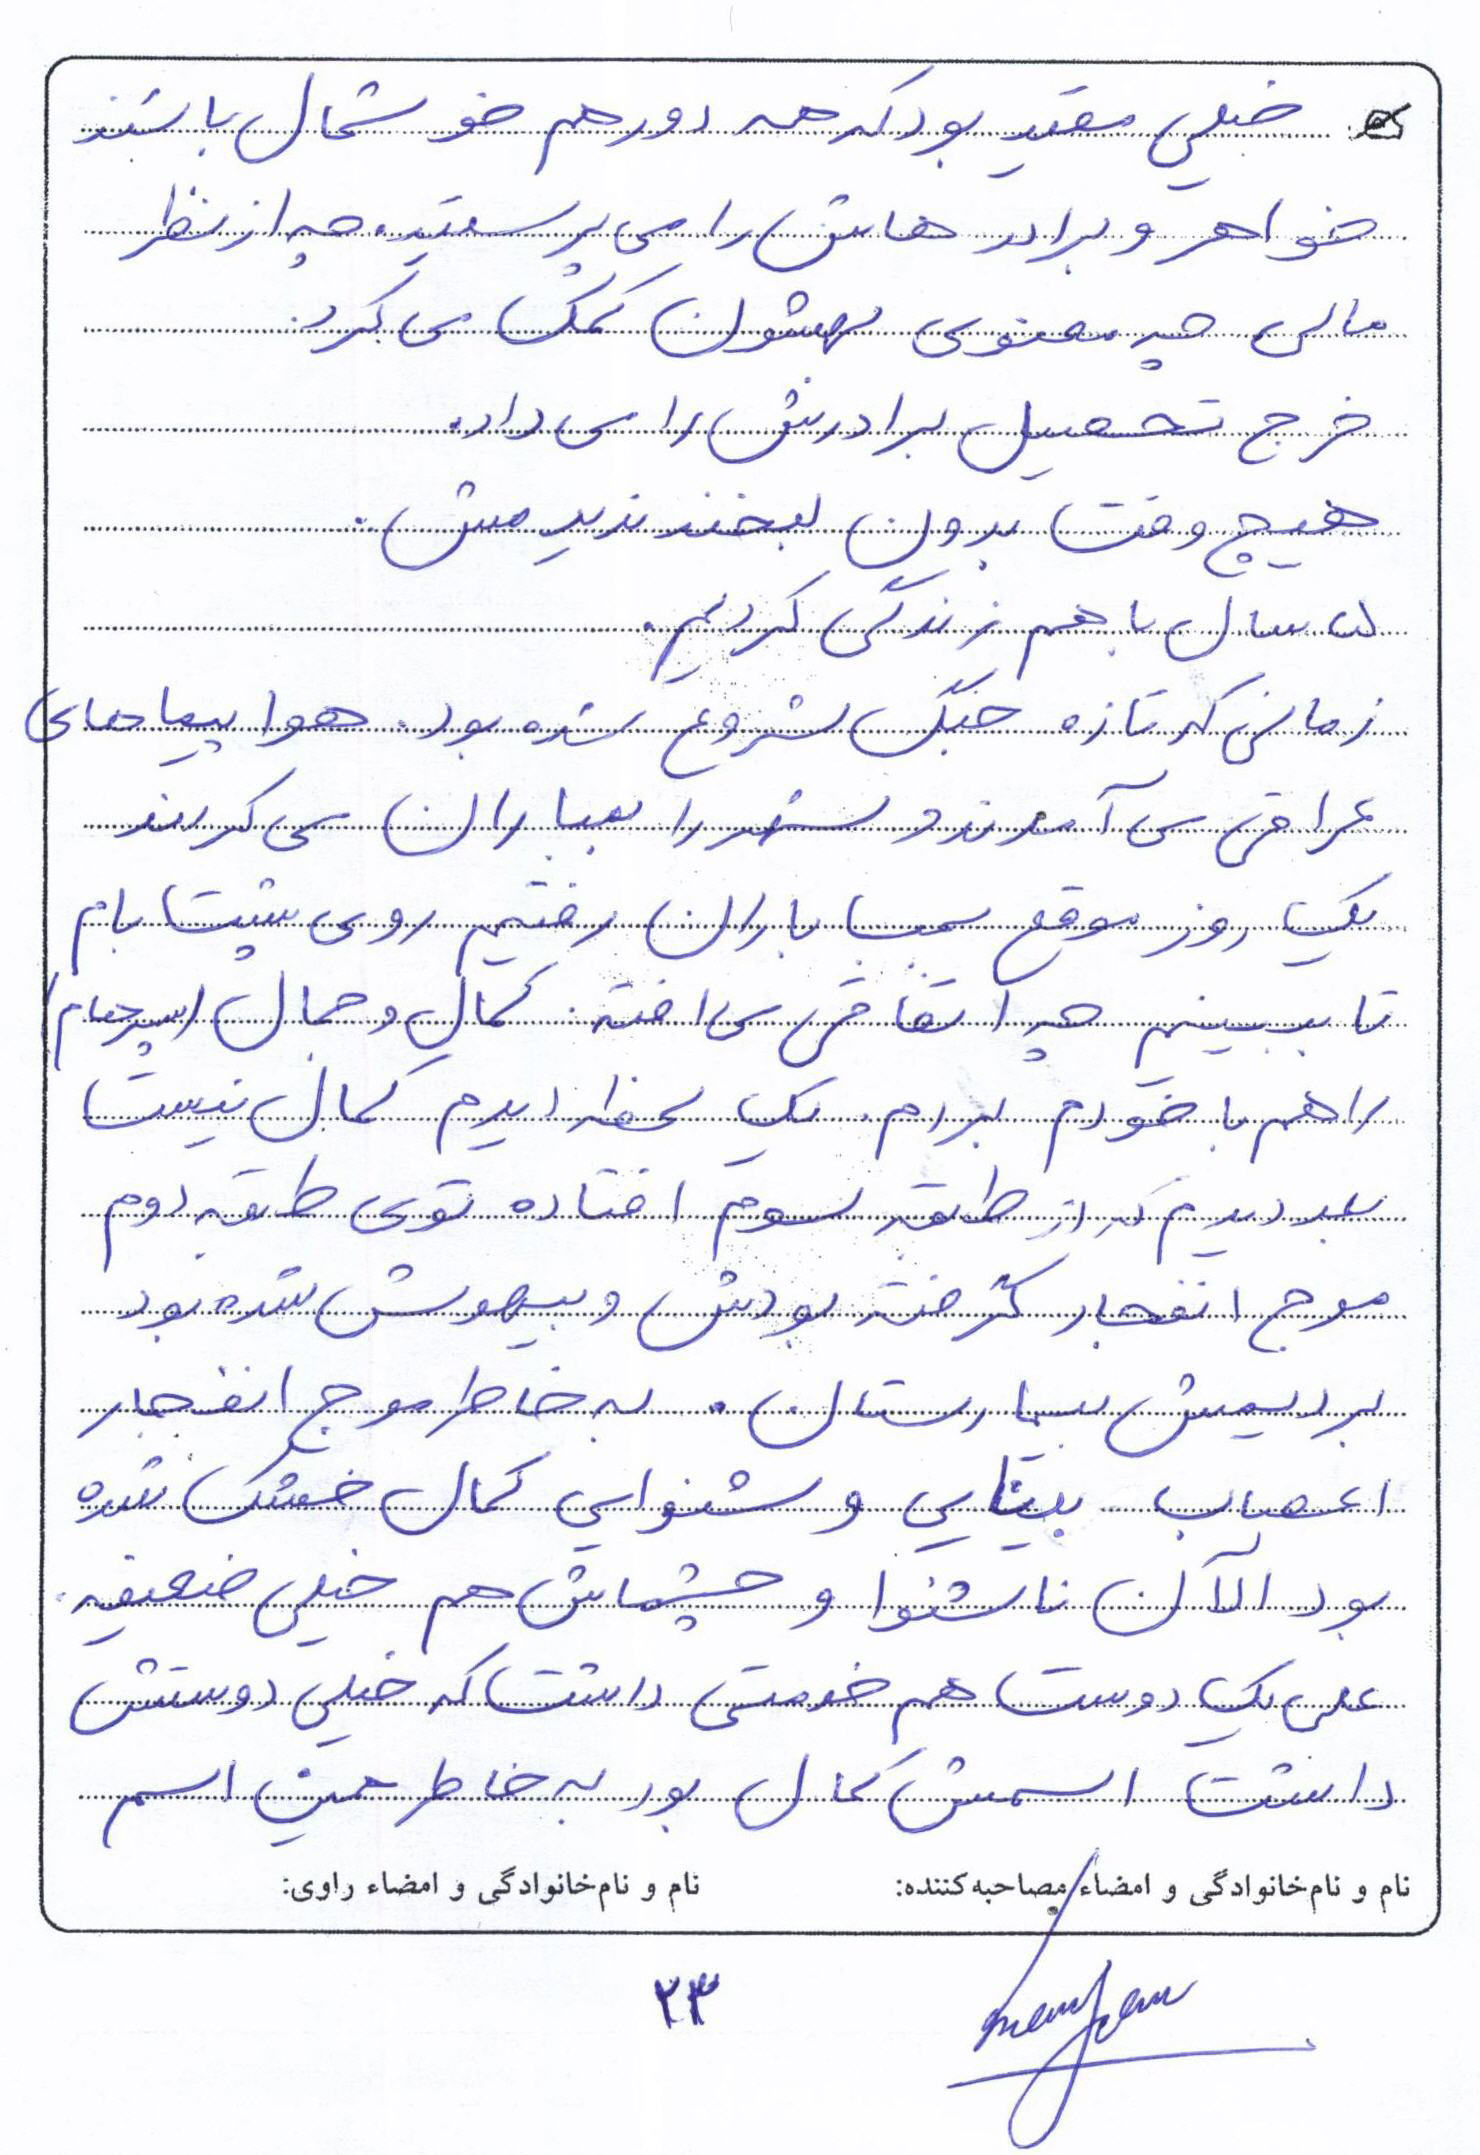 خیلی مقید بود که همه دور هم خوشحال باشند
خواهر و برادرهایش را می پرستید. چه از نظر
مالی چه معنوی بهشون کمک می کرد.
خرج تحصیل برادرش را می داد.
هیچ وقت بدون لبخند ندیدمش.
۵ سال با هم زندگی کردیم.
زمانی که تازه جنگ شروع شده بود. هواپیماهای
عراقی می آمدند و شهر را بمباران می کردند
یک روز موقع بمباران رفتیم روی پشت بام
تا ببینیم چه اتفاقی می افته. کمال و جمال (پسرهام)
را هم با خودم بردم. یک لحظه دیدم کمال نیست
بعد دیدم که از طبقه سوم افتاده توی طبقه دوم
موج انفجار گرفته بودش و بیهوش شده بود
بردیمش بیمارستان. به خاطر موج انفجار
اعصاب بینایی و شنوایی کمال خشک شده
بود الآن ناشنوا و چشماش هم خیلی ضعیفه.
علی یک دوست هم خدمتی داشت که خیلی دوستش
داشت اسمش کمال بود به خاطر همین اسم
نام و نام‌خانوادگی و امضاء مصاحبه‌کننده: نام و نام‌خانوادگی و امضاء راوی:
۲۳